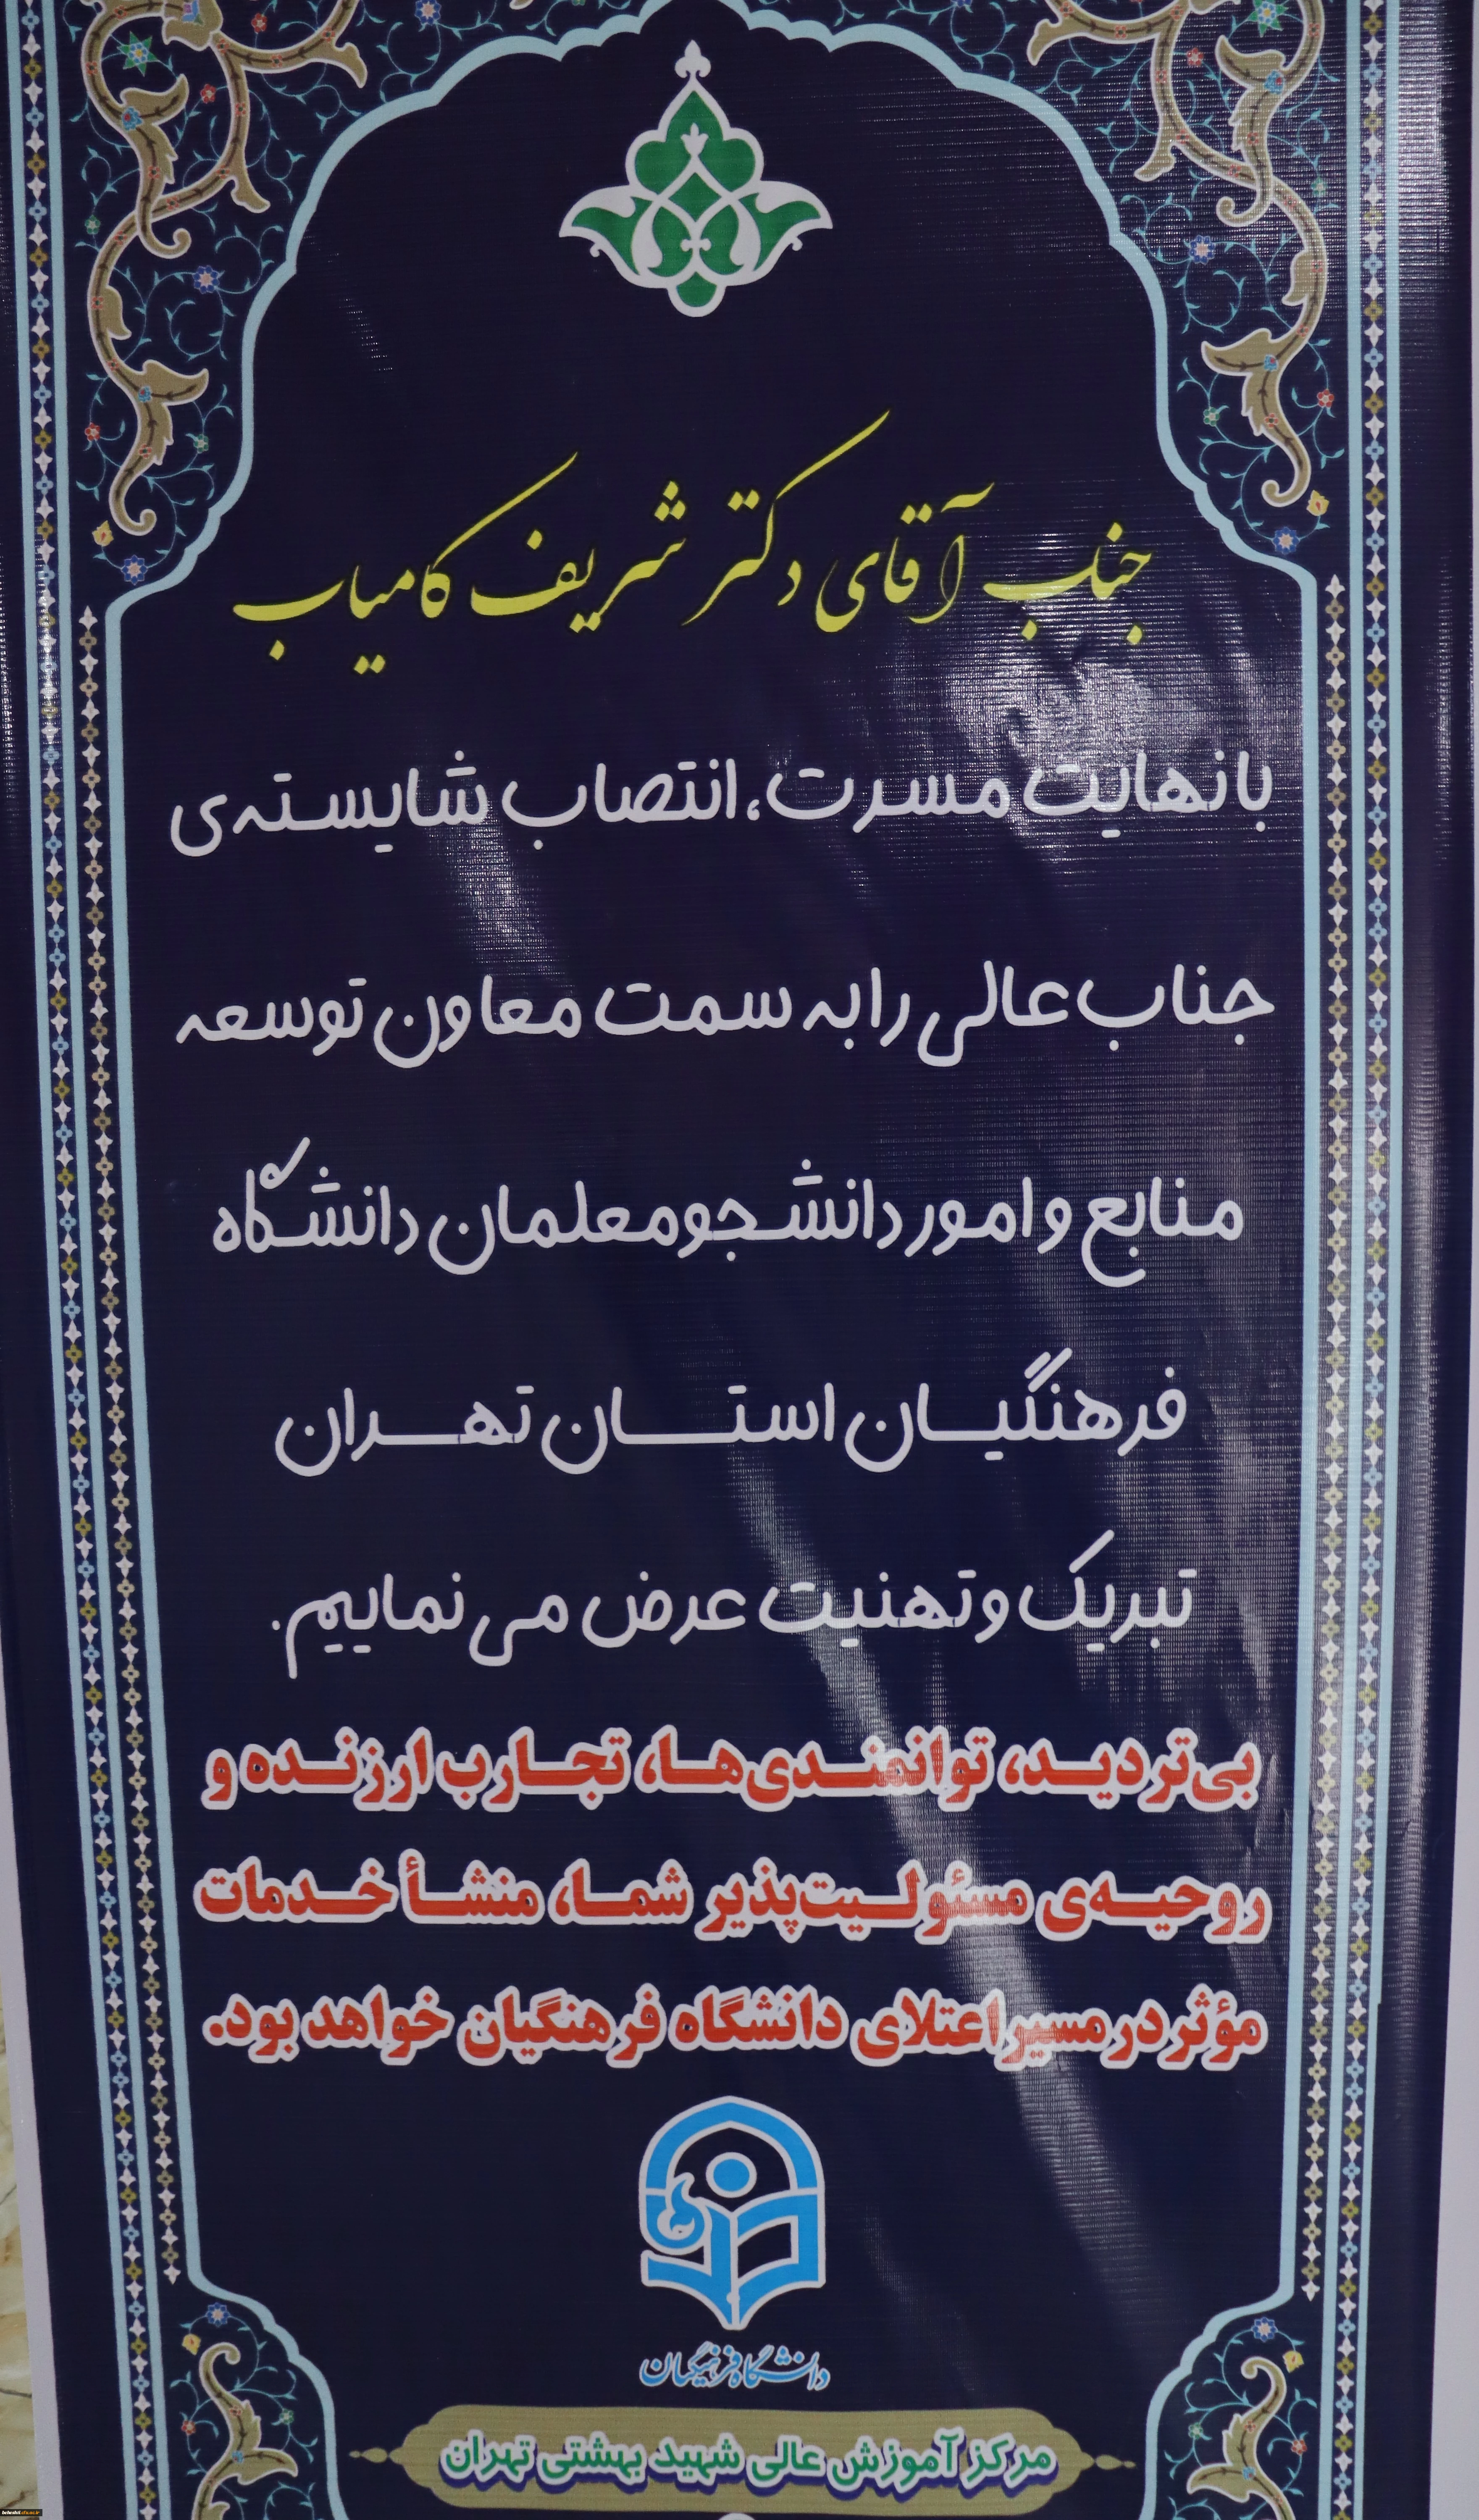 جناب آقای دکتر شریف کامیاب
با نهایت مسرت، انتصاب شایسته‌ی
جناب عالی را به سمت معاون توسعه
منابع و امور دانشجومعلمان دانشگاه
فرهنگیان استان تهران
تبریک و تهنیت عرض می نماییم.
بی‌تردید، توانمندی‌ها، تجارب ارزنده و
روحیه‌ی مسئولیت‌پذیر شما، منشأ خدمات
مؤثر در مسیر اعتلای دانشگاه فرهنگیان خواهد بود.
دانشگاه فرهنگیان
مرکز آموزش عالی شهید بهشتی تهران